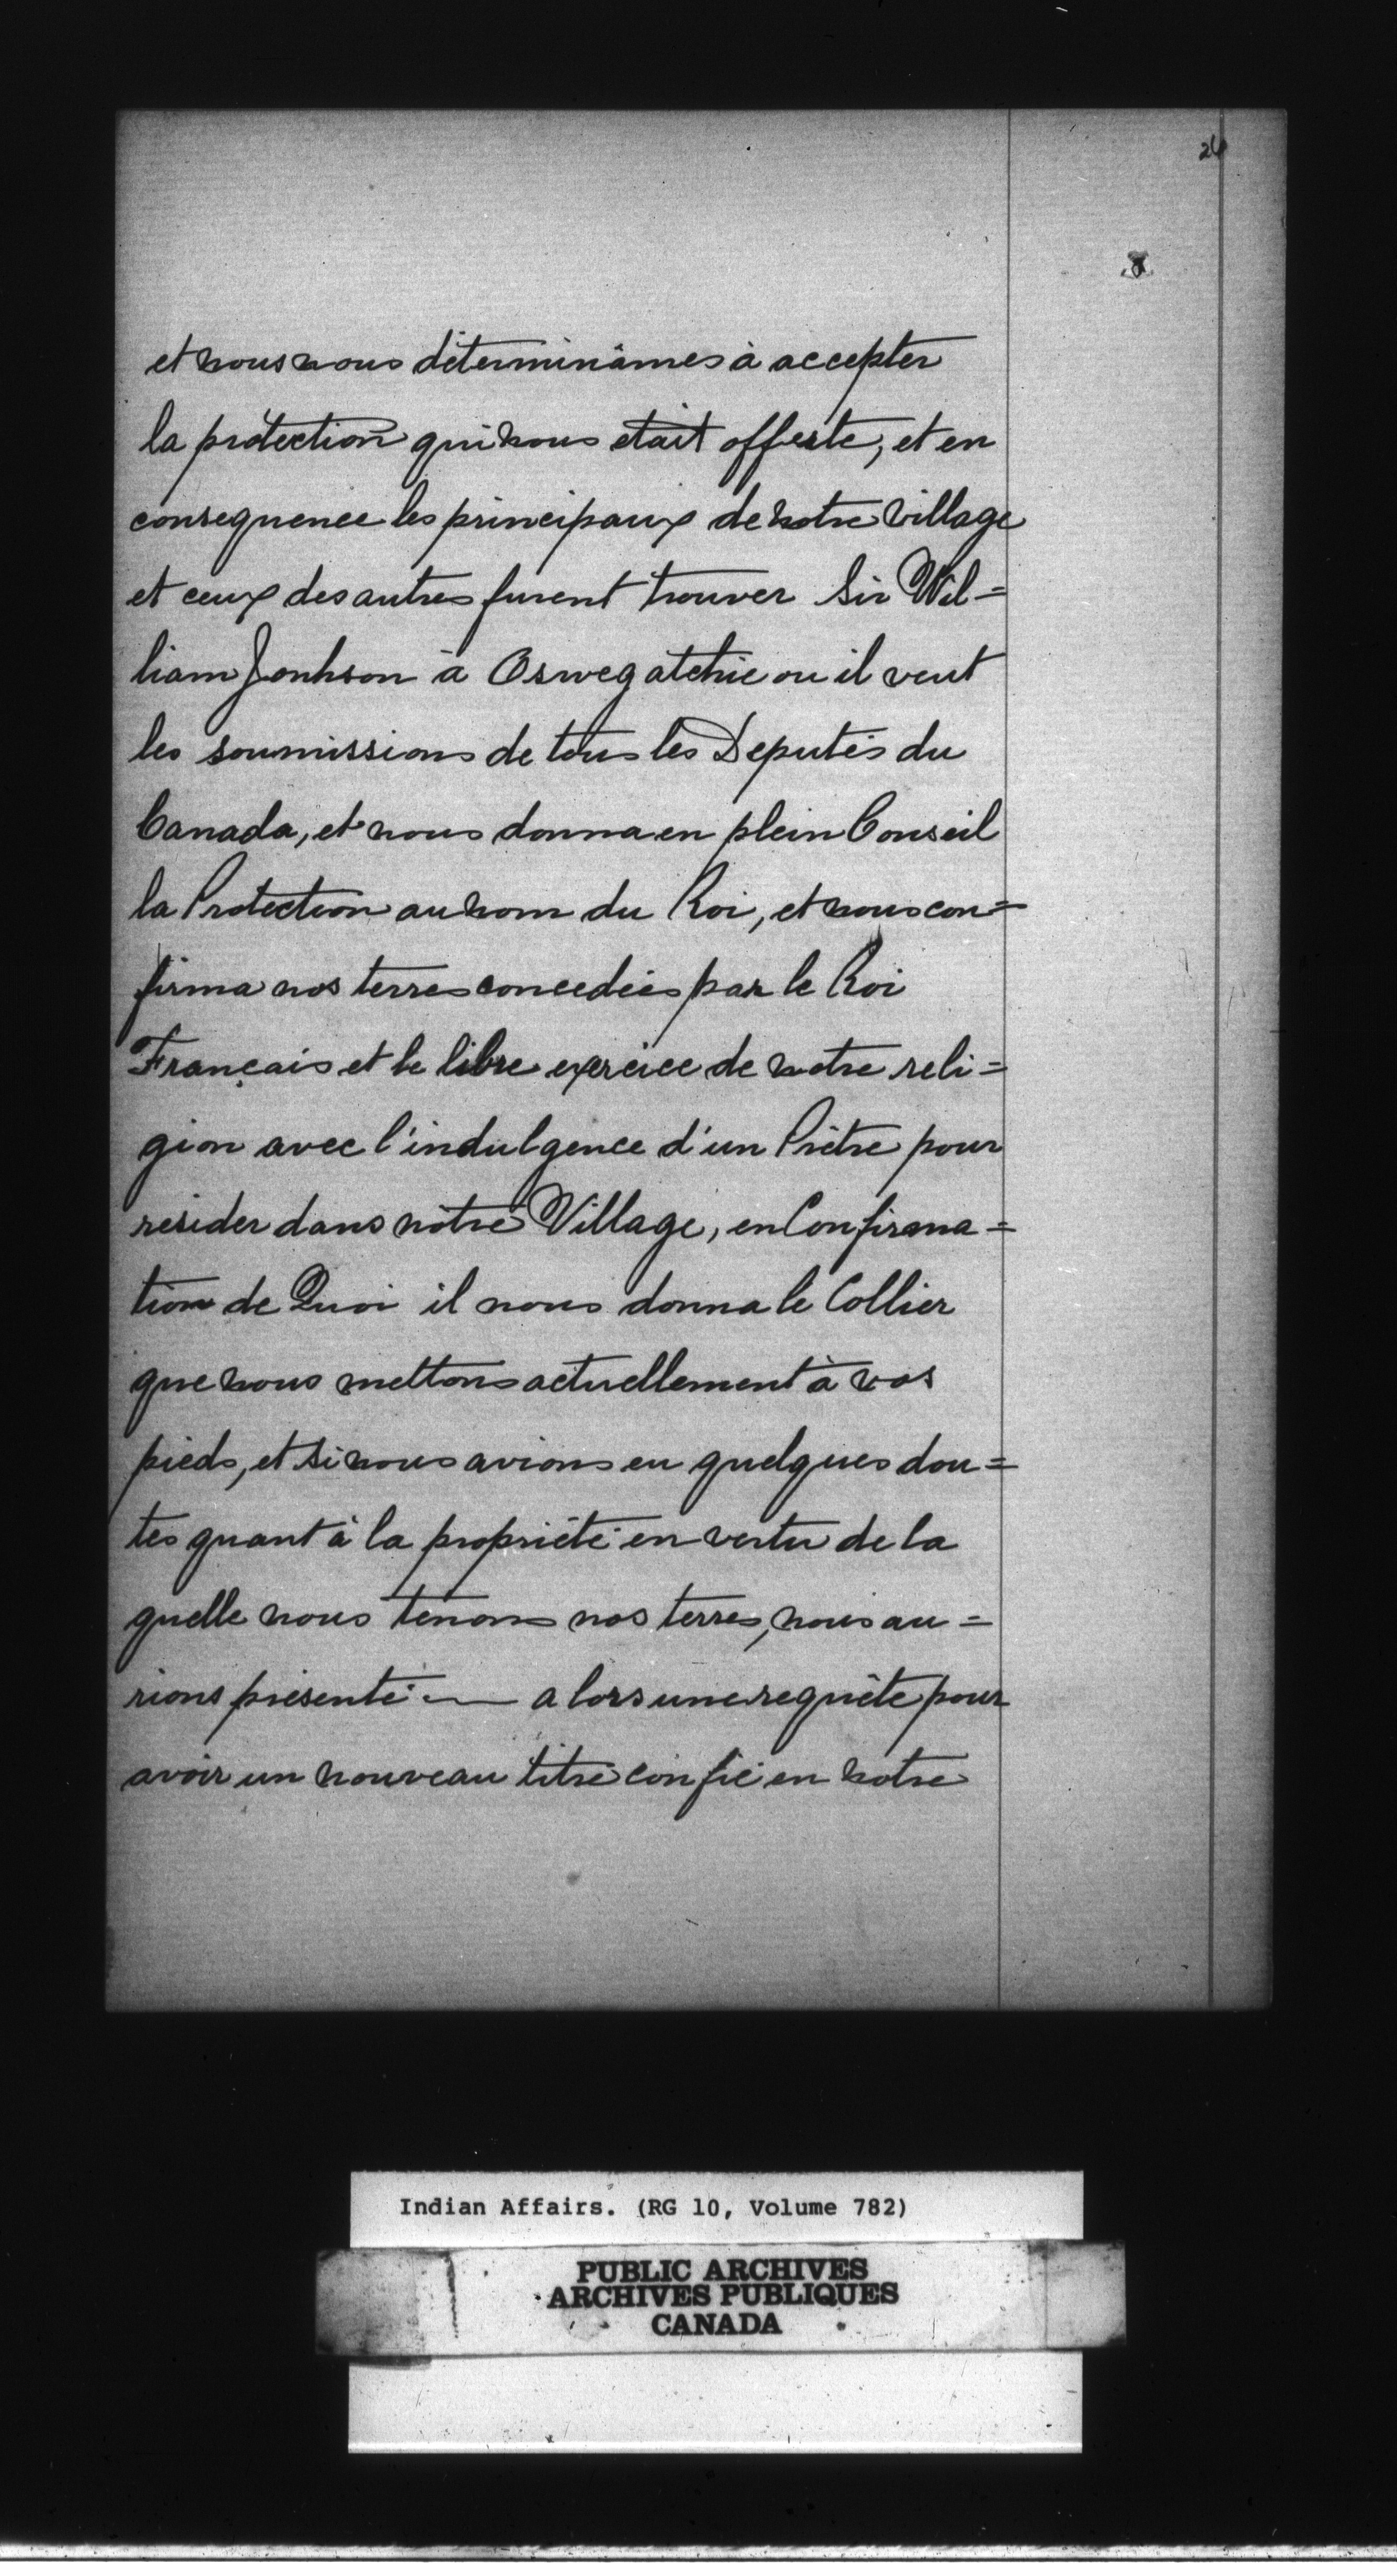 26
8
et nous nous déterminâmes à accepter
la protection qui nous etait offerte, et en
consequence les principaux de notre village
et ceux des autres furent trouver Sir Wil=
liam Jonhson à Oswegatchie ou il reut
les soumissions de tous les Deputés du
Canada, et nous donna en plein Conseil
la Protection au nom du Roi, et nous con=
firma nos terres concedées par le Roi
Français et le libre exercice de notre reli=
gion avec l'indulgence d'un Prêtre pour
resider dans nôtre Village, en Confirma=
tion de Quoi il nous donna le Collier
que nous mettons actuellement à vos
pieds, et si nous avions eu quelques dou=
tes quant à la propriété en vertu de la
quelle nous tenons nos terres, nous au=
rions présenté — alors une requête pour
avoir un nouveau titre confié en notre
Indian Affairs. (RG 10, Volume 782)
PUBLIC ARCHIVES
ARCHIVES PUBLIQUES
CANADA